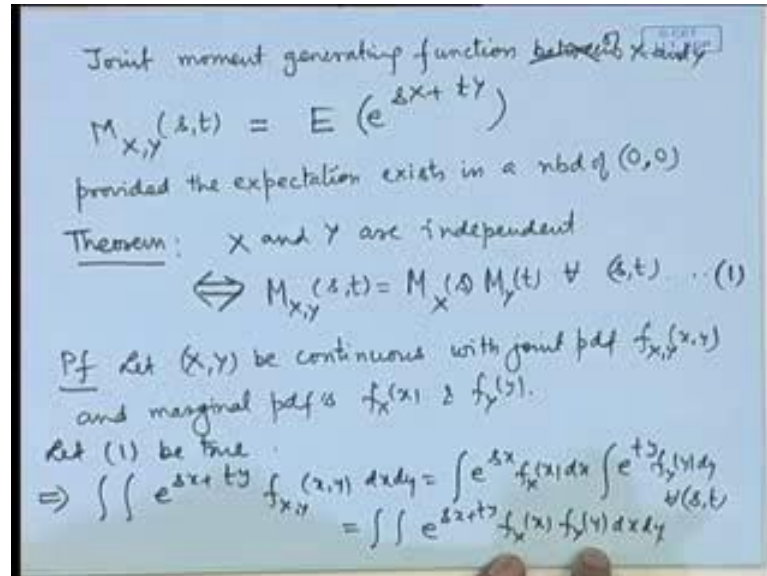 Joint moment generating function between X and Y
M_{X,Y}(s,t) = E(e^{sX+tY})
provided the expectation exists in a nbd of (0,0)
Theorem: X and Y are independent
⟺ M_{X,Y}(s,t) = M_X(s) M_Y(t) ∀ (s,t) ...(1)
Pf Let (X,Y) be continuous with joint pdf f_{X,Y}(x,y)
and marginal pdf's f_X(x) & f_Y(y).
Let (1) be true.
⇒ ∫∫ e^{sx+ty} f_{X,Y}(x,y) dxdy = ∫e^{sx} f_X(x)dx ∫e^{ty} f_Y(y)dy
∀(s,t)
= ∫∫ e^{sx+ty} f_X(x) f_Y(y) dxdy